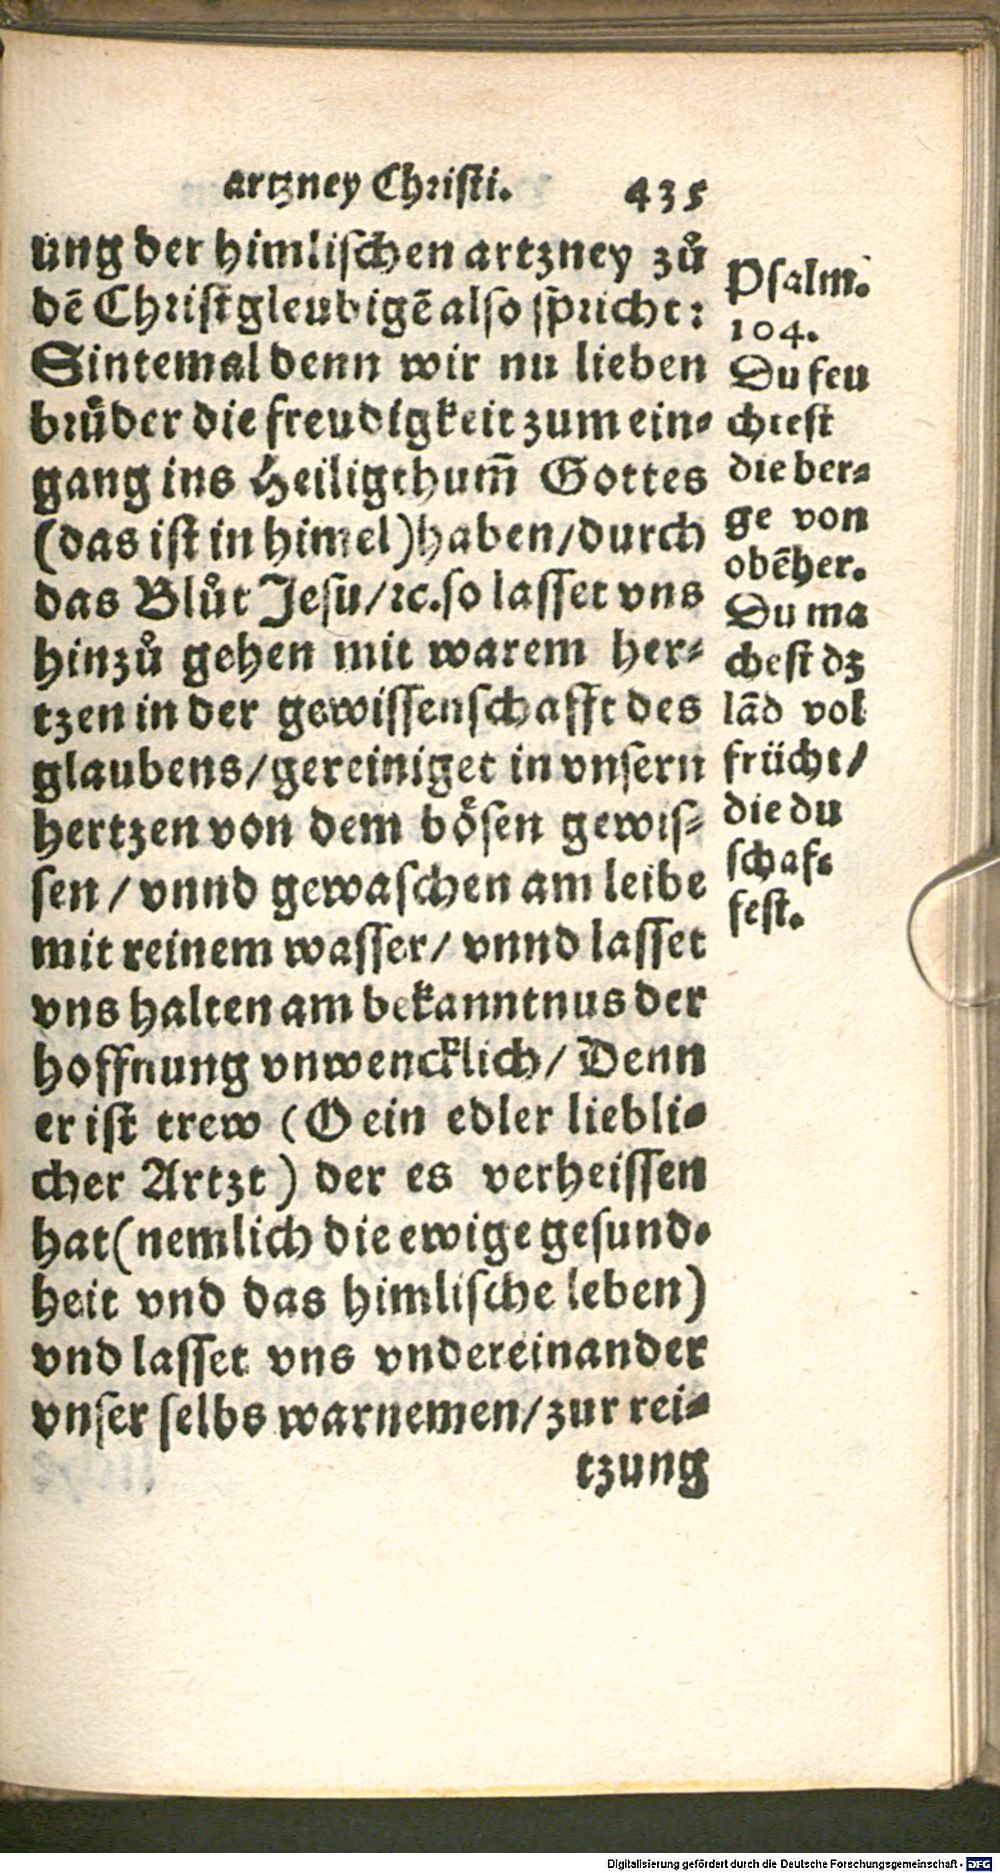 artzney Christi. 435
ung der himlischen artzney zů
dē Christgleubigē also spricht:
Sintemal denn wir nu lieben
brůder die freudigkeit zum ein-
gang ins Heiligthum̄ Gottes
(das ist in himel) haben/durch
das Blůt Jesu/ꝛc. so lasset vns
hinzů gehen mit warem her-
tzen in der gewissenschafft des
glaubens/gereiniget in vnsern
hertzen von dem boͤsen gewis-
sen/vnnd gewaschen am leibe
mit reinem wasser/vnnd lasset
vns halten am bekanntnus der
hoffnung vnwencklich/Denn
er ist trew (O ein edler liebli-
cher Artzt) der es verheissen
hat (nemlich die ewige gesund-
heit vnd das himlische leben)
vnd lasset vns vndereinander
vnser selbs warnemen/zur rei-
tzung
Psalm.
104.
Du feu
chtest
die ber-
ge von
obēher.
Du ma
chest dz
lād vol
frücht/
die du
schaf-
fest.
Digitalisierung gefördert durch die Deutsche Forschungsgemeinschaft - DFG